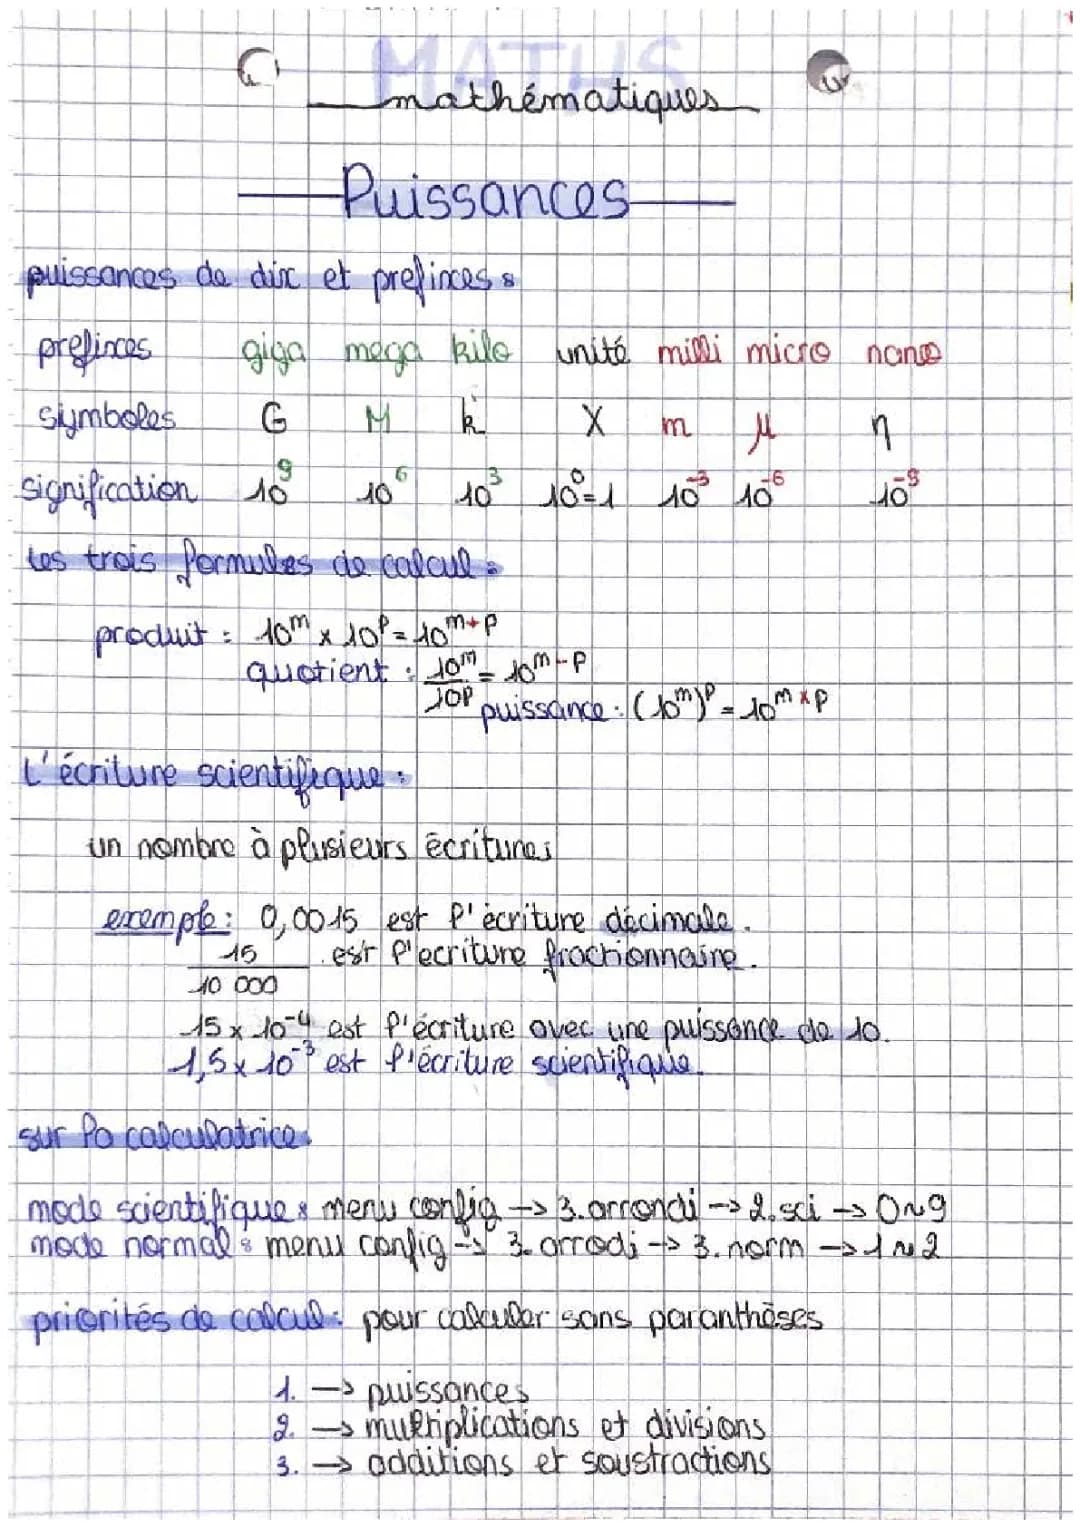 MATHS
mathématiques
Puissances
puissances de dix et prefixes :
prefixes giga mega kilo unité milli micro nano
symboles G M k X m μ η
signification 10⁹ 10⁶ 10³ 10⁰=1 10⁻³ 10⁻⁶ 10⁻⁹
Les trois formules de calcul :
produit : 10ᵐ x 10ᵖ = 10ᵐ⁺ᵖ
quotient : 10ᵐ/10ᵖ = 10ᵐ⁻ᵖ
puissance : (10ᵐ)ᵖ = 10ᵐ ˣ ᵖ
L'écriture scientifique :
un nombre à plusieurs écritures
exemple : 0,0015 est l'écriture décimale.
15/10 000 est l'ecriture fractionnaire.
15 x 10⁻⁴ est l'écriture avec une puissance de 10.
1,5 x 10⁻³ est l'écriture scientifique.
sur la calculatrice :
mode scientifique : menu config -> 3. arrondi -> 2. sci -> 0~9
mode normal : menu config -> 3. arrodi -> 3. norm -> 1~2
priorités de calcul : pour calculer sans paranthèses
1. -> puissances
2. -> multiplications et divisions
3. -> additions et soustractions